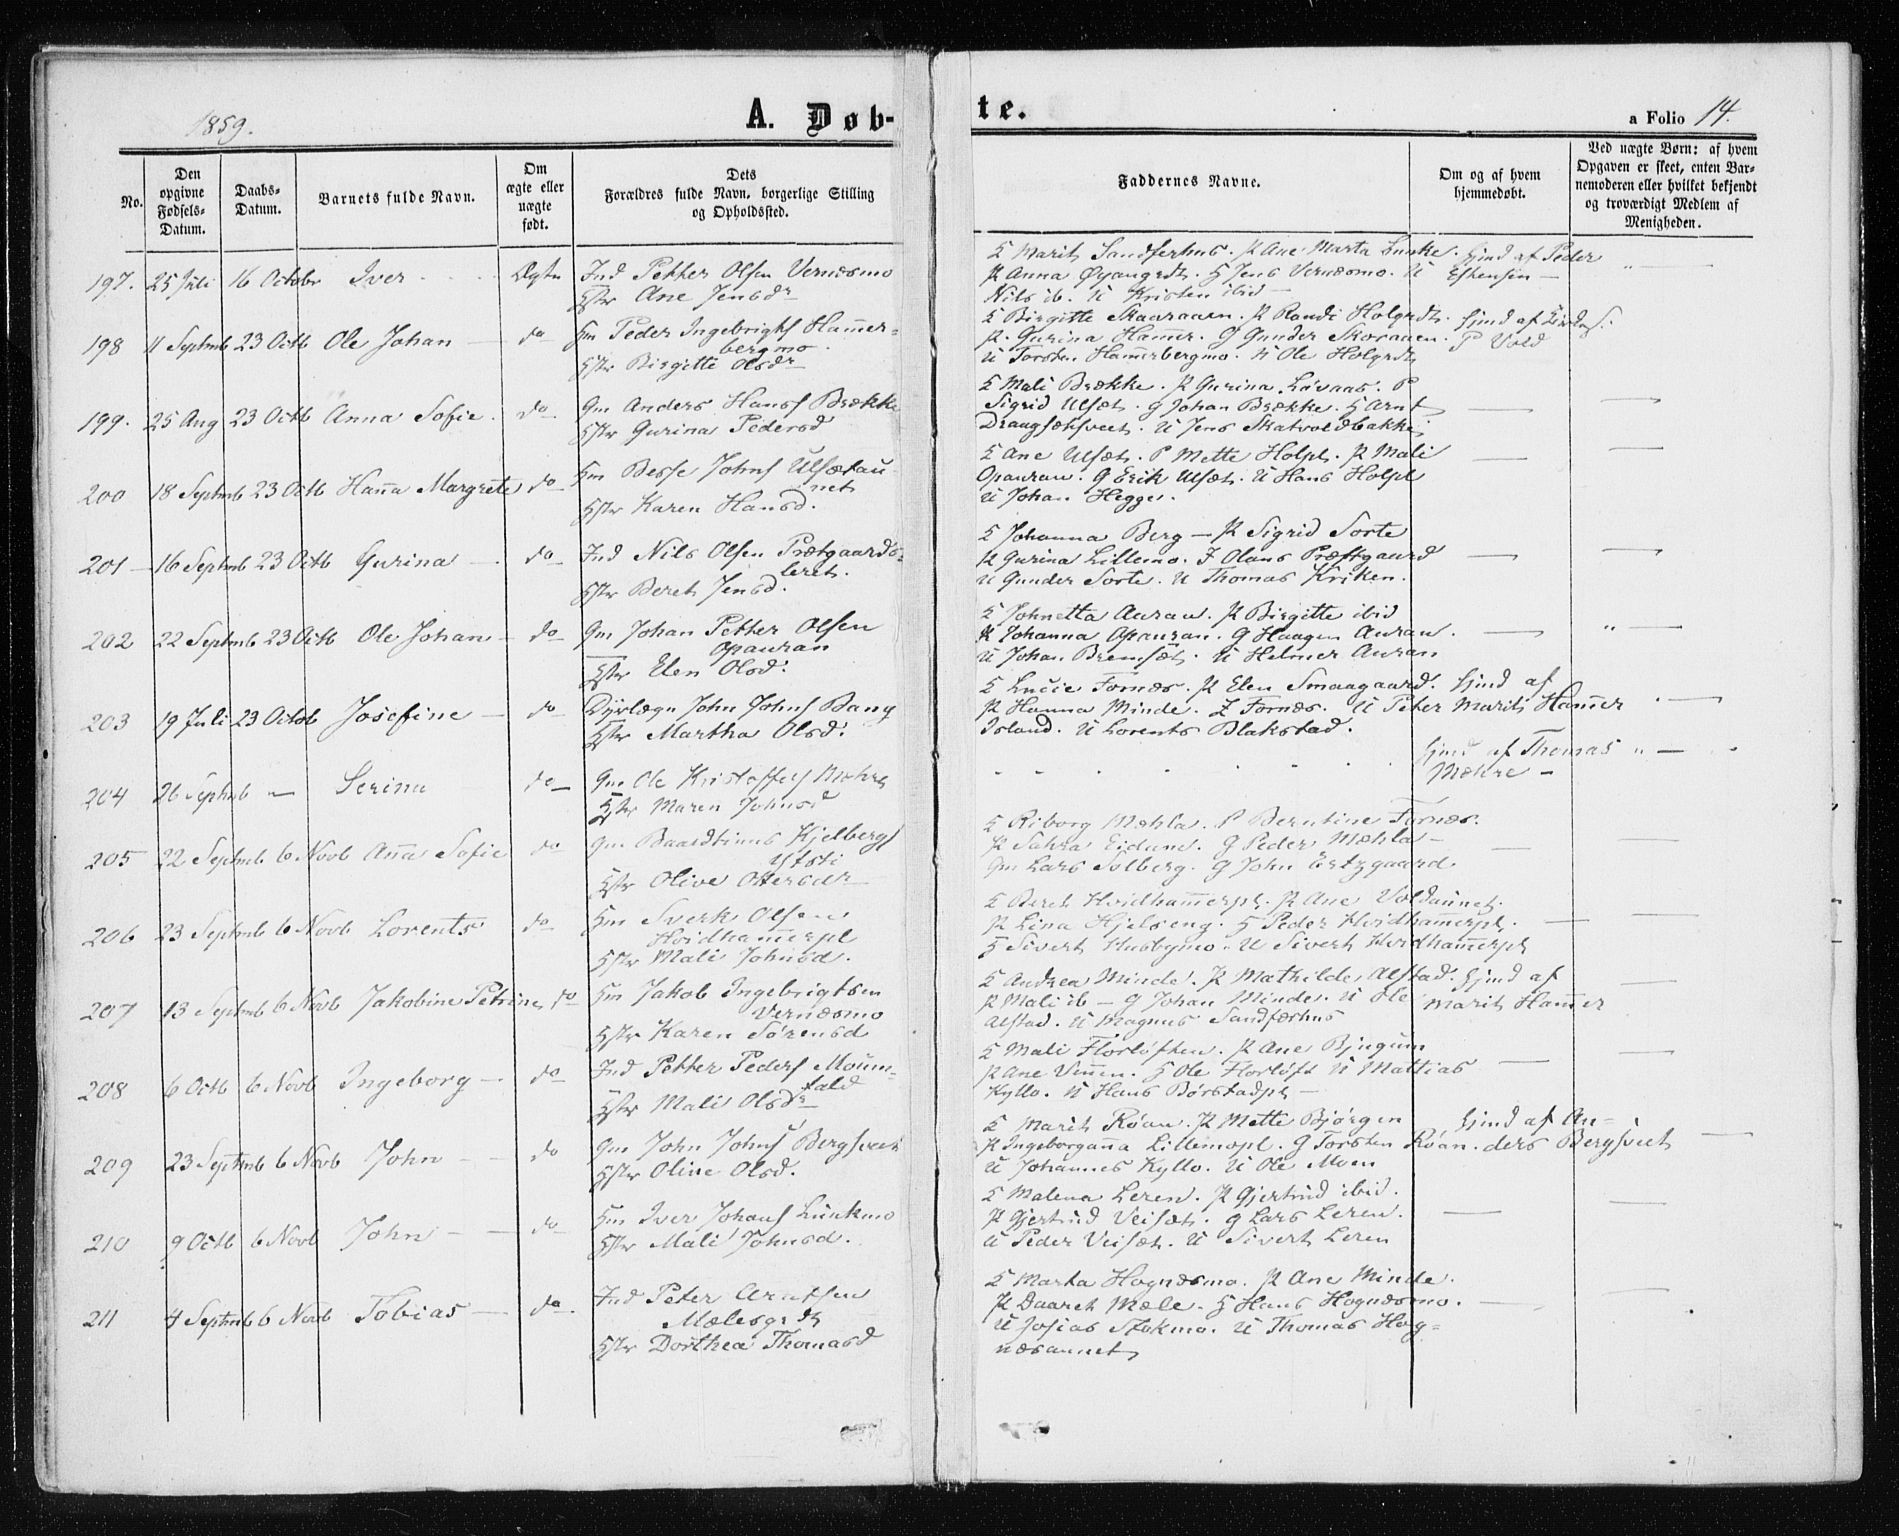 1859.
A. Døb-
te.
a Folio 14.
No.
Den opgivne Fødsels-Datum.
Daabs-Datum.
Barnets fulde Navn.
Om ægte eller uægte født.
Dets Forældres fulde Navn, borgerlige Stilling og Opholdssted.
Faddernes Navne.
Om og af hvem hjemmedøbt.
Ved uægte Børn: af hvem Opgaven er skeet, enten Barnemoderen eller hvilket bekjendt og troværdigt Medlem af Menigheden.
197. 25 Juli 16 Octobr Iver Ægte Ind Petter Olsen Vernæsmo
Hstr Ane Jensdr
K Marit Sandferhus. P Ane Marta Lunke. Hjmd af Peder
P Anna Øyangrdt. H Jens Vernæsmo. U Eskensen —
Nils ib. U Kristen ibid —
198 11 Septmb 23 Octb Ole Johan — do Hm Peder Ingebrigts Ham̅er=
bergmo.
Hstr Birgitte Olsdr
K Birgitte Skaaraaen. P Randi Holgrdt. Hjmd af
P. Gurina Ham̅er. G Gunder Skoraaen. P Vold
U Torsten Ham̅erbergmo. U Ole Holgrdt
199. 25 Aug 23 Octb Anna Sofie. do Gm Anders Hansf Brække
Hstr Gurina Pedersd
K Mali Brække. P Gurina Løvaas. P
Sigrid Ulsæt. G Johan Brække. H Arnt
Draugsæhsveet. U Jens Skatvoldbakke
200 18 Septmb 23 Octb Han̅a Margrete do Hm Besse Johnf Ulsætau
net
Hstr Karen Hansd.
K Ane Ulsæt. P Mette Holpl. P Mali
Opauran. G Erik Ulsæt. U Hans Holpl
U Johan Hegge.
201 — 16 Septmb 23 Octb Gurina — do Ind Nils Olsen Prætgaards=
leret.
Hstr Beret Jensd.
K Johanna Berg — P Sigrid Sorte
P Gurina Lillemo. F Olaus Præstgaard
U Gunder Sorte. U Thomas Kriken.
202 22 Septmb 23 Octb Ole Johan — do Gm Johan Petter Olsen
Opauran
Hstr Elen Olsd.
K Johnetta Auran. P Birgitte ibid
P Johanna Opauran. G Haagen Auran.
U Johan Bremsæt. U Helmer Auran
203 19 Juli 23 Octob Josefine — do Dyrlæge John Johnf Bang
Hstr Martha Olsd.
K Lucie Fornæs. P Elen Smaagaard. Hjmd af
P Hanna Minde. Fornæs. U Peter Marit Ham̅er
Island. U Lorents Blakstad.
204 26 Septmb — Serina do — Gm Ole Kristoffersf Mæhre
Hstr Maren Johnsd
Hjmd af Thomas
Mæhre —
205 22 Septmb 6 Novb An̅a Sofie do Gm Baardtinus Kjelbergf
Yststi
Hstr Olive Ottersdr
K Riborg Mæhla. P Berntine Fornæs.
P Sahra Eidum. G Peder Mæhla —
Gm Lars Solberg. G John Ertzgaard
206 23 Septmb 6 Novb Lorents do Hm Sverk Olsen
Hvidham̅erpl
Hstr Mali Johnsd.
K Beret Hvidham̅erpl. P Ane Voldau̅net.
P Lina Hjelseng. H Peder Hvidham̅erpl.
H Sivert Husbymo. U Sivert Hvidham̅erpl
207 13 Septmb 6 Novb Jakobine Petrine do Hm Jakob Ingebrigtsen
Vernæsmo
Hstr Karen Sørensd
K Andrea Minde. P Mathilde Alstad. Hjmd af
P Mali ib — G Johan Minde. U Ole Marit Ham̅er
Alstad. U Magnus Sandfærhus
208 6 Octb 6 Novb Ingeborg — do Ind Petter Pedersf Moum=
fald
Hstr Mali Olsdr
K Mali Florløften. P Ane Bjugum
P Ane Vin̅en. H Ole Florløft U Mattias
Kyllo. U Hans Børstadpl —
209 23 Septmb 6 Novb John do Gm John Johnsf Bergsveet
Hstr Oline Olsd.
K Marit Røan. P Mette Bjørgen Hjmd af An=
P Ingeborgan̅a Lillemopl. G Torsten Røan. ders Bergsveet
U Johannes Kyllo. U Ole Moen
210 9 Octb 6 Novb John — do Hm Iver Johansf Lunkmo
Hstr Mali Johnsd.
K Malena Leren. P Gjertrud ibid.
P Gjertrud Veisæt. G Lars Leren.
U Peder Veisæt. U Sivert Leren
211 4 Septmb 6 Novb Tobias — do Ind Peter Arntsen
Mælesgrdt
Hstr Dorthea Thomasd
K Marta Hognæsmo. P Ane Minde.
P Daaret Mæle. H Hans Hognæsmo.
U Josias Stokmo. U Thomas Hog=
næsaunet